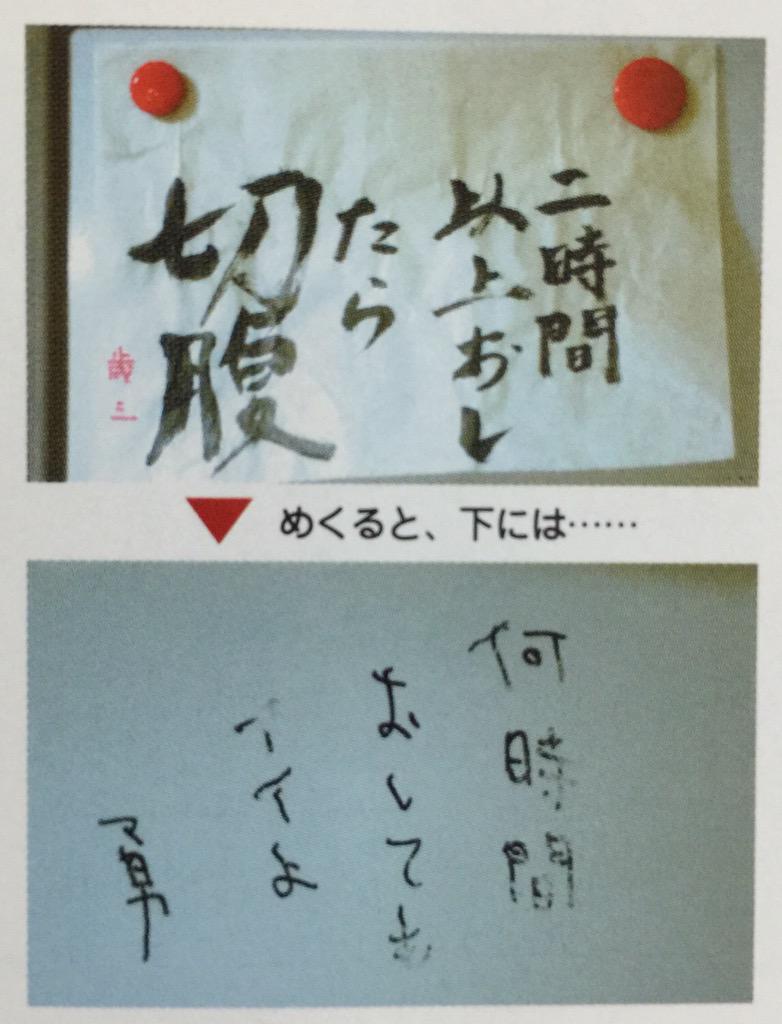 二時間
以上おし
たら
切腹
歳三
めくると、下には……
何時間
おしても
イイよ
勇